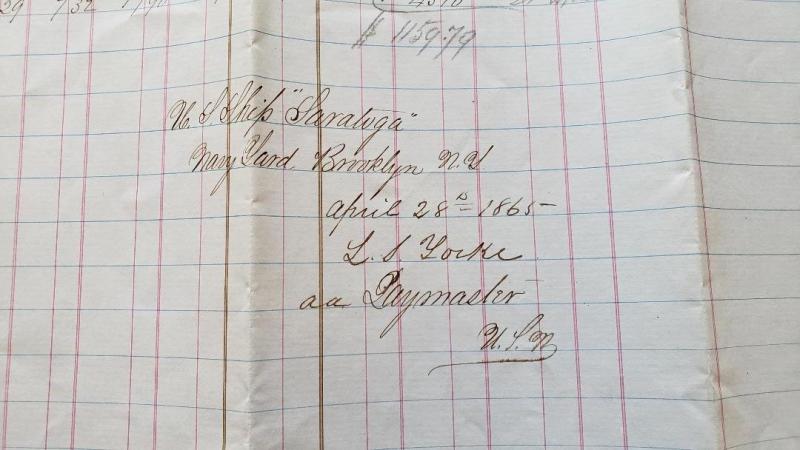 29 732
$ 1159.79
U. S. Ship "Saratoga"
Navy Yard. Brooklyn N. Y
April 28th 1865
L. S Yorke
aa Paymaster
U. S. N